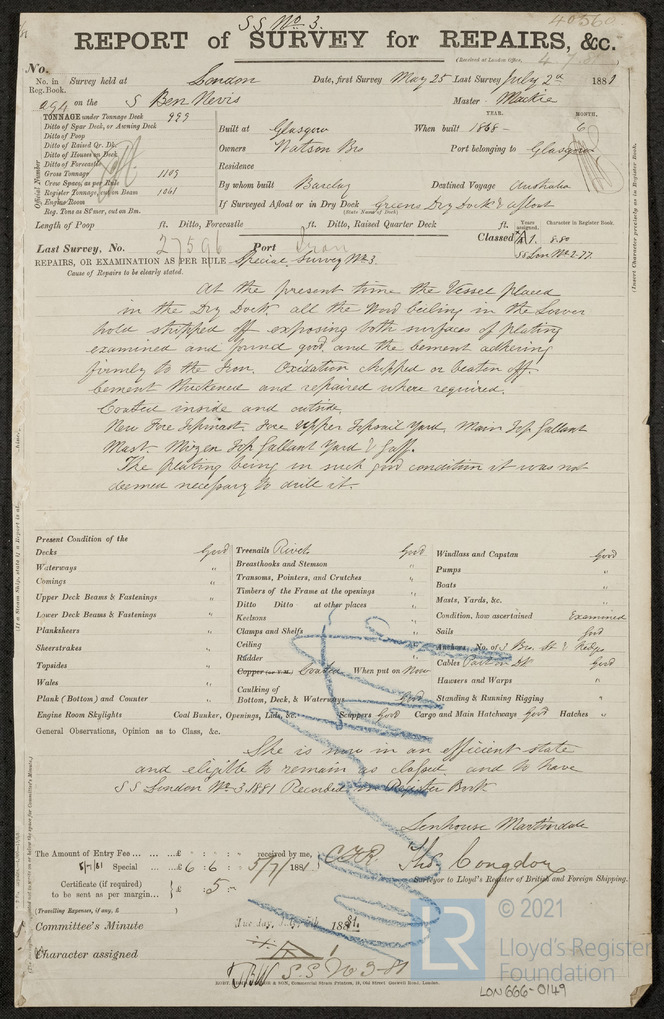 S S No 3.
40360
REPORT of SURVEY for REPAIRS, &c.
(Received at London Office,
No.
No. in Survey held at London Date, first Survey May 25 Last Survey July 2nd 1881
Reg. Book.
294 on the S Ben Nevis Master Mackie
TONNAGE under Tonnage Deck 999
Ditto of Spar Deck, or Awning Deck
Ditto of Poop
Ditto of Raised Qr. Dk.
Ditto of Houses on Deck
Ditto of Forecastle
Gross Tonnage 1109
Crew Space, as per Rule
Register Tonnage, cut on Beam 1061
Engine Room
Reg. Tons as St'mer, cut on Bm.
Official Number
YEAR. MONTH.
Built at Glasgow When built 1868 - 6
Owners Watson Bros Port belonging to Glasgow
Residence
By whom built Barclay Destined Voyage Australia
If Surveyed Afloat or in Dry Dock Greens Dry Dock & afloat
(State Name of Dock)
Length of Poop ft. Ditto, Forecastle ft. Ditto, Raised Quarter Deck ft.
Years assigned. Character in Register Book.
Last Survey, No. 27596 Port Iron Classed A 1. 8.80
SS Lon No 2-77
REPAIRS, OR EXAMINATION AS PER RULE Special Survey No 3
Cause of Repairs to be clearly stated.
(Insert Character precisely as in Register Book.
At the present time the Vessel placed
in the Dry Dock. all the Wood Ceiling in the Lower
hold stripped off exposing both surfaces of plating
examined and found good. and the Cement adhering
firmly to the Iron. Oxidation chipped or beaten off.
Cement thickened and repaired where required.
Coated inside and outside.
New Fore Topmast. Fore Upper Topsail Yard, Main Top Gallant
Mast. Mizen Top Gallant Yard & Gaff.
The plating being in such good condition it was not
deemed necessary to drill it.
Present Condition of the
Decks Good
Waterways "
Comings "
Upper Deck Beams & Fastenings "
Lower Deck Beams & Fastenings "
Planksheers "
Sheerstrakes "
Topsides "
Wales "
Plank (Bottom) and Counter "
Treenails Rivets Good
Breasthooks and Stemson "
Transoms, Pointers, and Crutches "
Timbers of the Frame at the openings "
Ditto Ditto at other places "
Keelsons "
Clamps and Shelfs "
Ceiling "
Rudder "
Copper (or Y.M.) Coated When put on Now
Caulking of
Bottom, Deck, & Waterways Good
Windlass and Capstan Good
Pumps "
Boats "
Masts, Yards, &c. "
Condition, how ascertained Examined
Sails Good
Anchors, No. of 3 Bow St & Kedges
Cables Good
Hawsers and Warps "
Standing & Running Rigging "
Engine Room Skylights Coal Bunker, Openings, Lids, &c. Scuppers Good Cargo and Main Hatchways Good Hatches "
General Observations, Opinion as to Class, &c.
She is now in an efficient state
and eligible to remain as classed and to have
S S London No 3 1881 Recorded in Register Book
Senhouse Martindale
The Amount of Entry Fee ... ... ...£ : : received by me, C.F.R. Thos Congdon
5/7/81 Special ... ...£ 6 : 6 : 5/7/1881
Surveyor to Lloyd's Register of British and Foreign Shipping.
Certificate (if required)
to be sent as per margin... £ : 5 :
(Travelling Expenses, if any, £ )
Committee's Minute 1881.
Character assigned
S.S No 3-81
© 2021
LR
Lloyd's Register
Foundation
LON666-0149